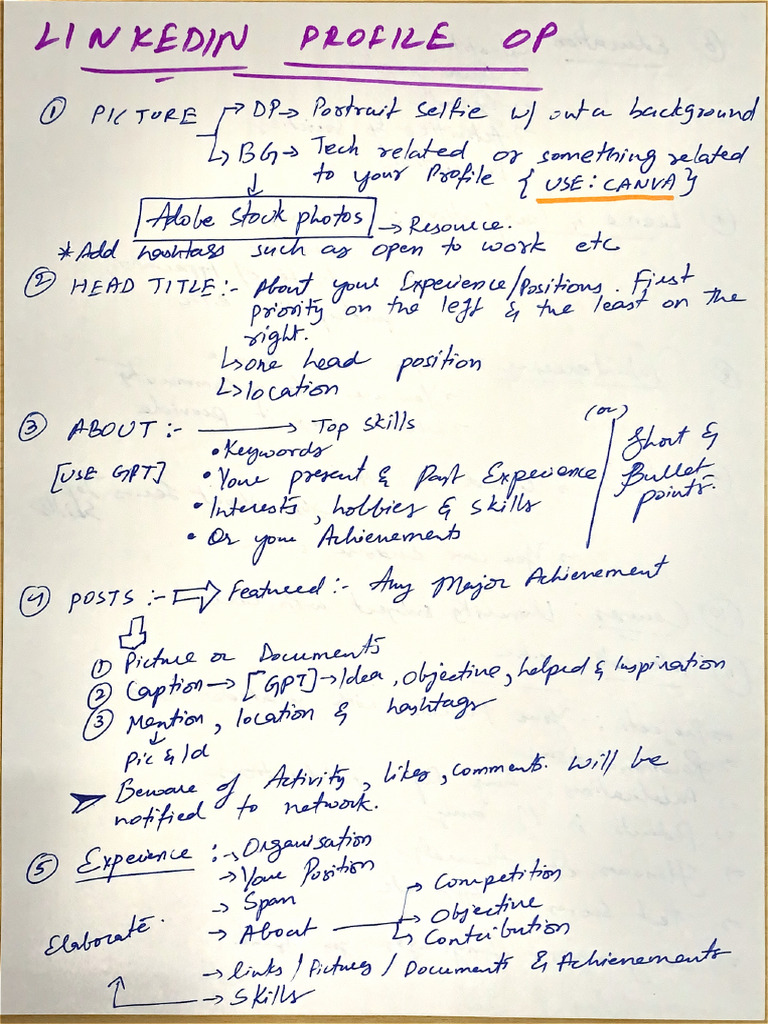 LINKEDIN PROFILE OP
① PICTURE → DP → Portrait selfie w/ out a background
↳ BG → Tech related or something related
to your Profile { USE: CANVA }
Adobe stock photos → Resource.
* Add hashtags such as open to work etc
② HEAD TITLE :- About your Experience/Positions. First
priority on the left & the least on the
right.
↳ one head position
↳ location
③ ABOUT :- → Top skills
• Keywords
[USE GPT] • Your present & Past Experience
• Interests, hobbies & skills
• Or your Achievements
(or)
Short &
Bullet
points.
④ POSTS :- ⇒ Featured :- Any Major Achievement
① Picture or Documents
② Caption → [GPT] → Idea, Objective, helped & Inspiration
③ Mention, location & hashtags
↓
Pic & Id
➤ Beware of Activity, likes, comments. will be
notified to network.
⑤ Experience :- → Organisation
→ Your Position
→ Span
Elaborate. → About → Competition
→ Objective
↳ Contribution
→ links / Pictures / Documents & Achievements
→ Skills